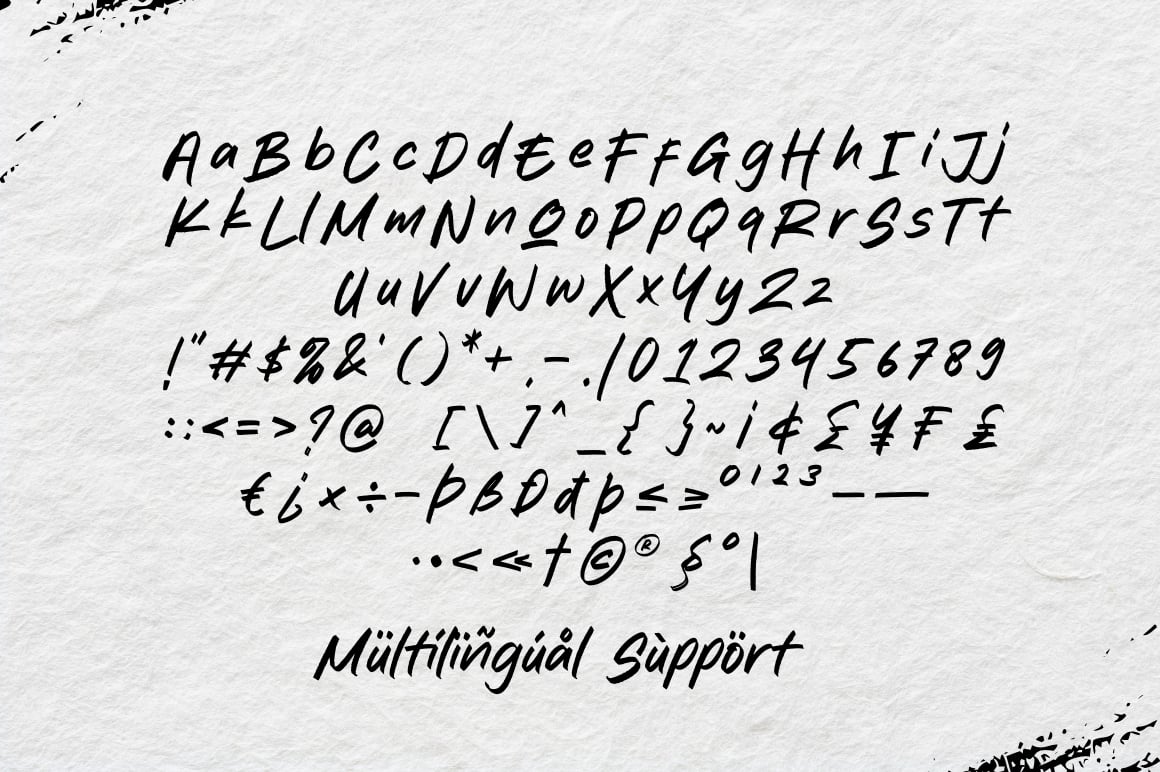 AaBbCcDdEeFfGgHhIiJj
KkLlMmNnOoPpQqRrSsTt
UuVvWwXxYyZz
!"#$%&'()*+,-./0123456789
:;<=>?@ [\]^_{}~¡¢£¥₣₤
€¿×÷−ÞßĐđþ≤≥⁰¹²³–—
·•‹«†©®§°|
Mültílïñgúål Sùppört